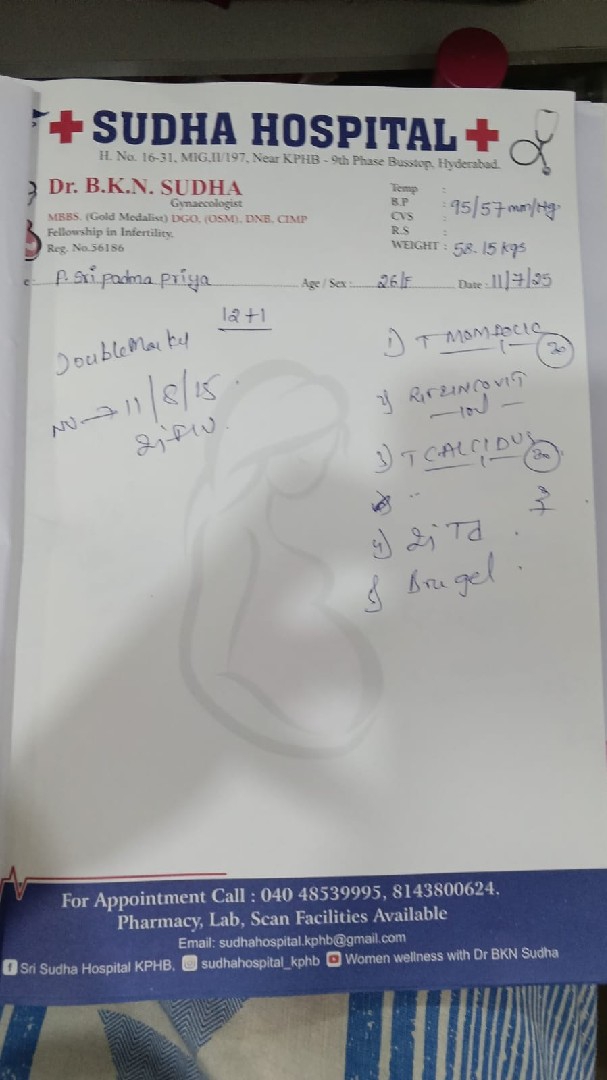 SUDHA HOSPITAL
H. No. 16-31, MIG,II/197, Near KPHB - 9th Phase Busstop, Hyderabad.
Dr. B.K.N. SUDHA
Gynaecologist
MBBS. (Gold Medalist) DGO, (OSM), DNB, CIMP
Fellowship in Infertility.
Reg. No.56186
Temp :
B.P : 95/57 mm/Hg.
CVS :
R.S :
WEIGHT : 58.15 kgs
P. Sri padma priya Age / Sex : 26/F Date : 11/7/25
12+1
Double Marker
11/8/15
1) T
30
2)
3) T
30
4) Td
5)
For Appointment Call : 040 48539995, 8143800624.
Pharmacy, Lab, Scan Facilities Available
Email: sudhahospital.kphb@gmail.com
Sri Sudha Hospital KPHB, sudhahospital_kphb Women wellness with Dr BKN Sudha